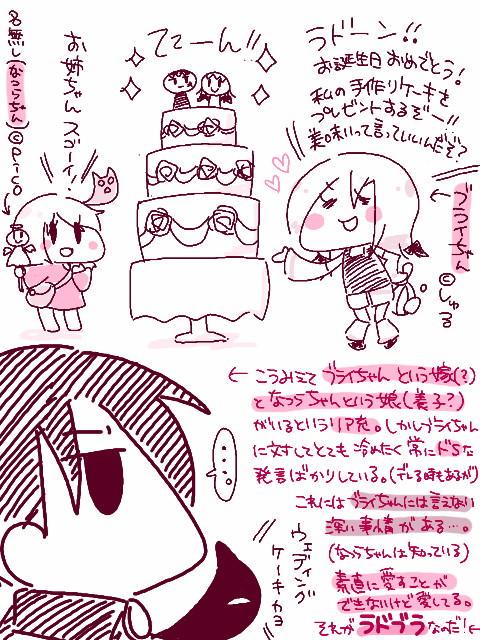 ラドーン!!
お誕生日おめでとう!
私の手作りケーキを
プレゼントするぞー!!
美味いって言っていいんだぞ?
ててーん!!
お姉ちゃん
スゴーイ!
名無し(なっちゃん)©Prico
ブライちゃん
©しゅる
← こうみえて ブライちゃんという嫁(?)
となっちゃんという娘(養子?)
がいるというリア充。しかしブライちゃん
に対してとても冷めたく常にドSな
発言ばかりしている。(デレる時もあるが)
これにはブライちゃんには言えない
深い事情がある…。
(なっちゃんは知っている)
素直に愛すことが
できないけど愛してる。
それがラドブラなのだ!←
・・・・。
ウェディング
ケーキかよ